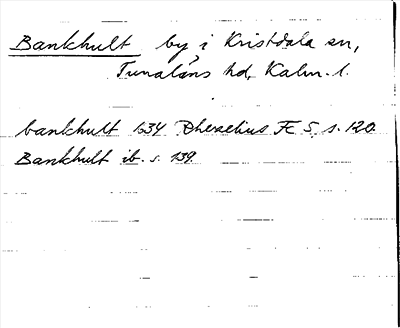 Bankhult by i Kristdala sn,
Tunaläns hd, Kalm. l.
bankhult 1634 Rherelius FC 5, s. 120.
Bankhult ib. s. 139